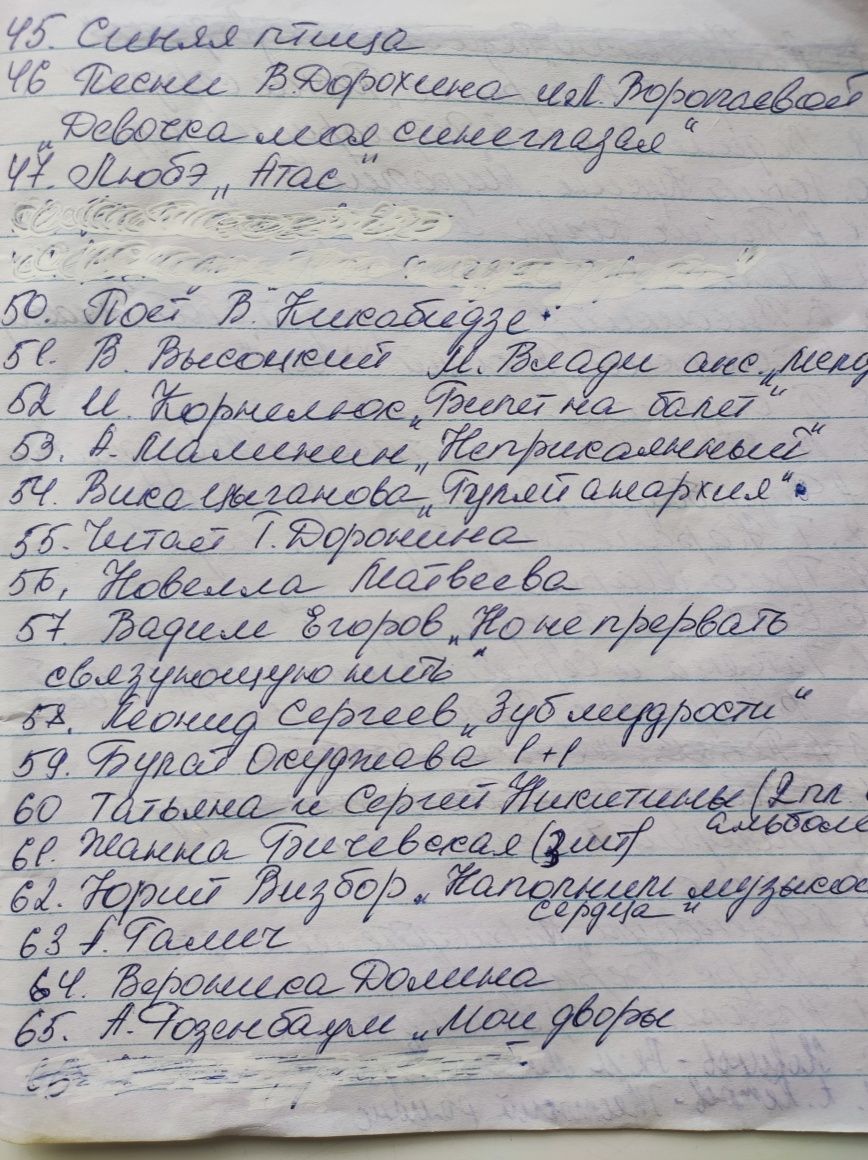 45. Синяя птица
46 Песни В.Дорохина и Л. Воропаевой
„Девочка моя синеглазая"
47. Любэ „Атас"
50. Поёт В. Кикабидзе
51. В. Высоцкий М. Влади анс. „Мелод
52 И. Корнелюк „Билет на балет"
53. А. Малинин „Неприкаянный"
54. Вика Цыганова „Гуляй анархия"
55. Читает Т. Доронина
56. Новелла Матвеева
57 Вадим Егоров „Но не прервать
связующую нить"
58. Леонид Сергеев „Зуб мудрости"
59. Булат Окуджава 1+1
60 Татьяна и Сергей Никитины (2 пл
альбом
61. Жанна Бичевская (3 шт)
62. Юрий Визбор „Наполним музыкой
сердца"
63 А. Галич
64. Вероника Долина
65. А. Розенбаум „Мои дворы